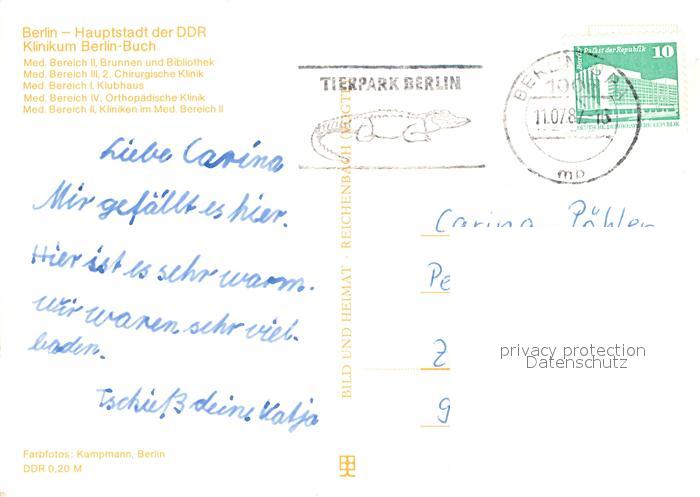 Berlin – Hauptstadt der DDR
Klinikum Berlin-Buch
Med. Bereich II, Brunnen und Bibliothek
Med. Bereich III, 2. Chirurgische Klinik
Med. Bereich I, Klubhaus
Med. Bereich IV, Orthopädische Klinik
Med. Bereich II, Kliniken im Med. Bereich II
TIERPARK BERLIN
BERLIN
11.07.87
mp
Palast der Republik
10
DEUTSCHE DEMOKRATISCHE REPUBLIK
Liebe Carina
Mir gefällt es hier.
Hier ist es sehr warm.
wir waren sehr viel
baden.
Tschieß deine Katja
BILD UND HEIMAT · REICHENBACH (VOGTL)
Carina Pöhler
Pe
Z
g
privacy protection
Datenschutz
Farbfotos: Kampmann, Berlin
DDR 0,20 M